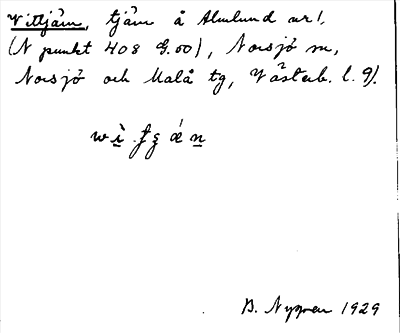 Vittjärn, tjärn å Almlund ar!,
(N punkt 408 G.00), Norsjö sn,
Norsjö och Malå tg, Västerb. l. 9).
B. Nygren 1929